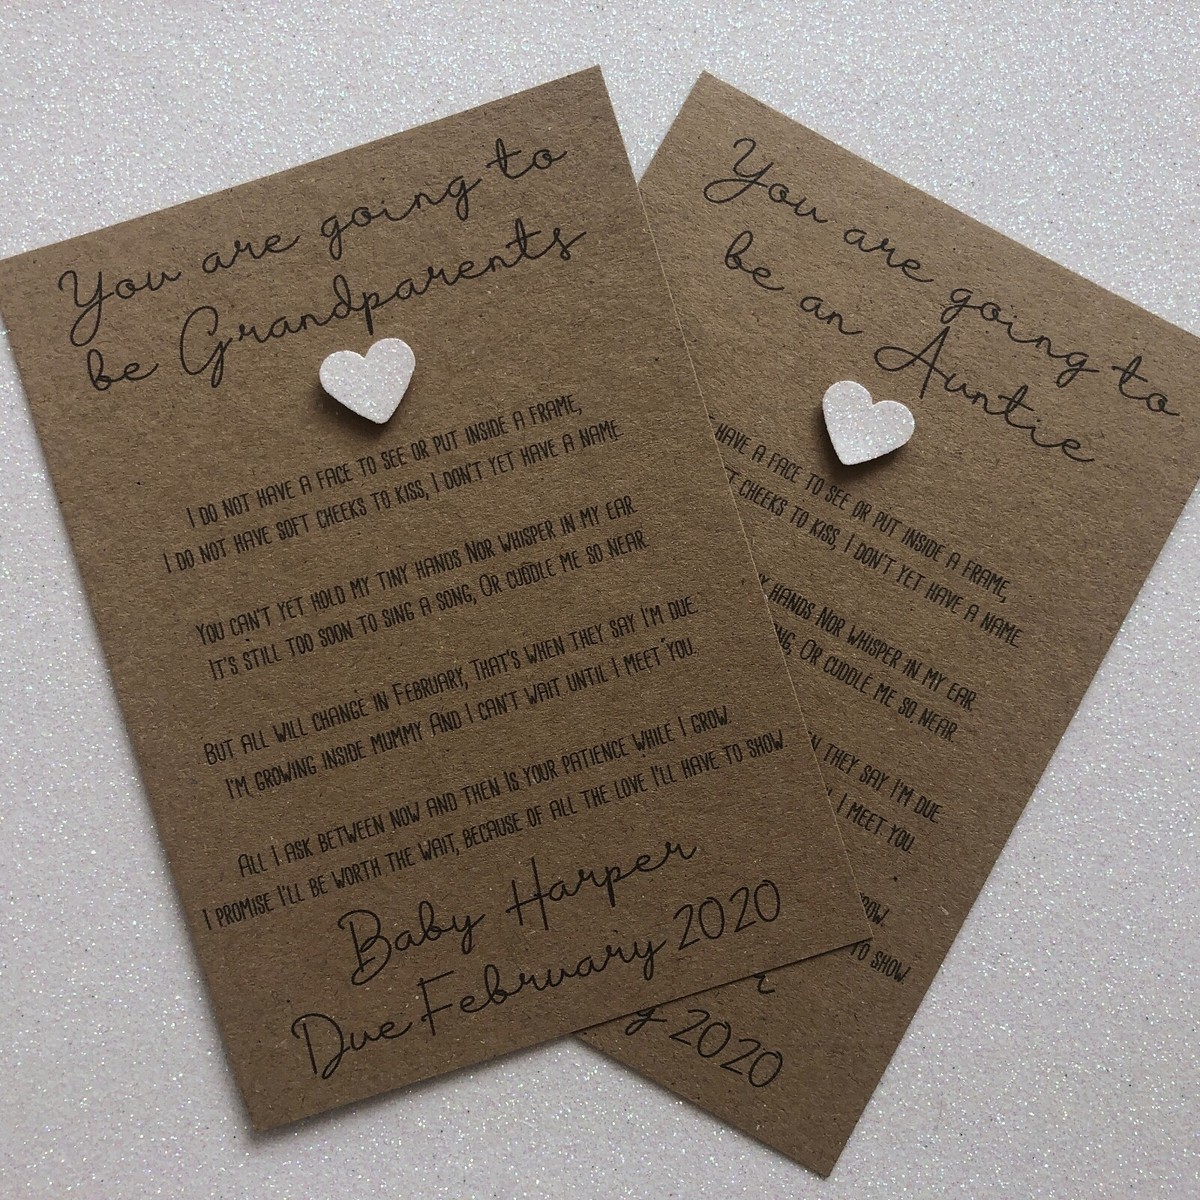 You are going to
be Grandparents
I do not have a face to see or put inside a frame,
I do not have soft cheeks to kiss, I don't yet have a name.
You can't yet hold my tiny hands Nor whisper in my ear.
It's still too soon to sing a song, Or cuddle me so near.
But all will change in February, That's when they say I'm due.
I'm growing inside mummy And I can't wait until I meet you.
All I ask between now and then Is your patience while I grow.
I promise I'll be worth the wait, because of all the love I'll have to show.
Baby Harper
Due February 2020
You are going to
be an Auntie
have a face to see or put inside a frame,
cheeks to kiss, I don't yet have a name.
hands Nor whisper in my ear.
Or cuddle me so near.
they say I'm due.
I meet you.
to show.
2020